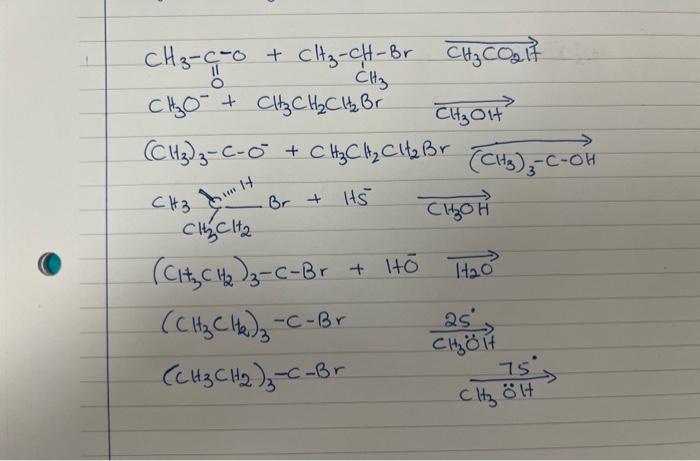 CH3-C-O⁻ + CH3-CH-Br CH3CO2H
|| O CH3
CH3O⁻ + CH3CH2CH2Br CH3OH
(CH3)3-C-O⁻ + CH3CH2CH2Br (CH3)3-C-OH
CH3 C H Br + HS⁻ CH3OH
CH3CH2
(CH3CH2)3-C-Br + HO⁻ H2O
(CH3CH2)3-C-Br 25° CH3ÖH
(CH3CH2)3-C-Br 75° CH3ÖH